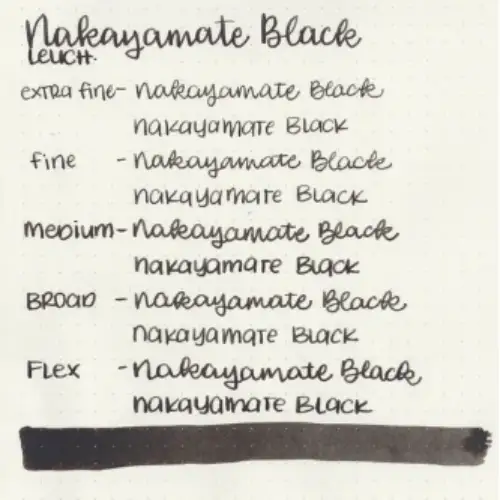 Nakayamate Black
LEUCH.
EXTRA fine - Nakayamate Black
NAKAYAMATE BLACK
fine - Nakayamate Black
NAKAYAMATE BLACK
MEDIUM - Nakayamate Black
NAKAYAMATE BLACK
BROAD - Nakayamate Black
NAKAYAMATE BLACK
FLEX - Nakayamate Black
NAKAYAMATE BLACK